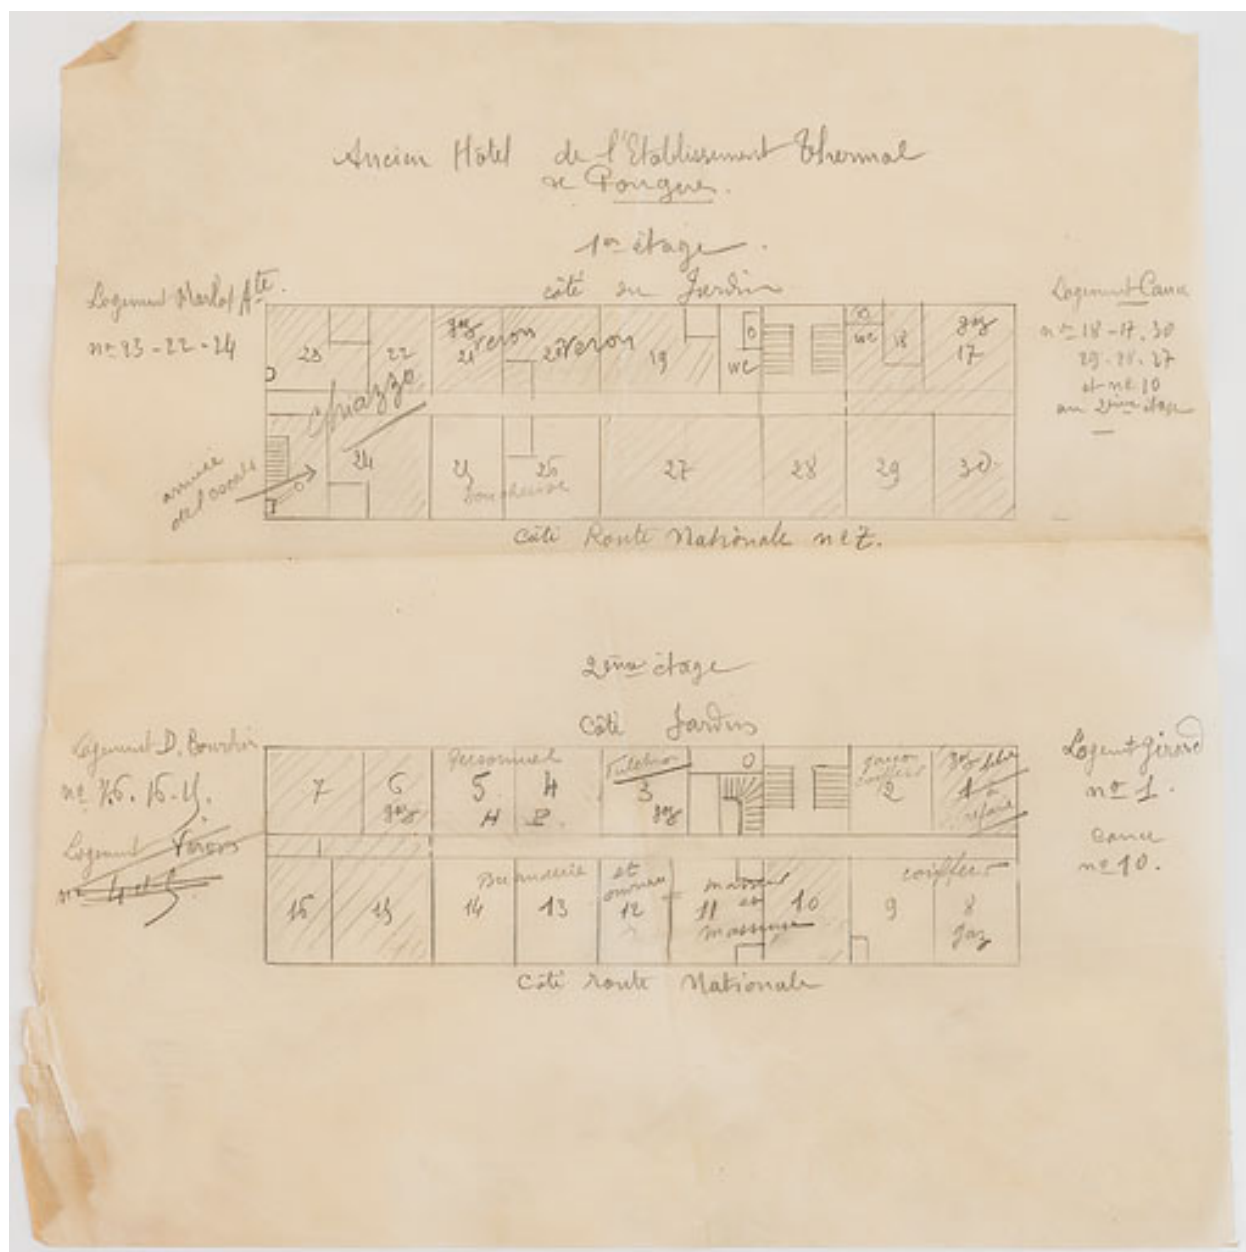 Ancien Hôtel de l'Etablissement Thermal
de Pougues.
1er étage.
côté du Jardin
Logement
Ate.
no 23-22-24
Logement Cance
no 18-17.30
29.28.27
et no 10
au 2ème étage
23
22
gaz
21 Veron
20 Veron
19
WC
WC
18
gaz
17
Chiazzo
arrivée
de l'escal
24
25
26
27
28
29
30
Côté Route Nationale no 7.
2ème étage
Côté Jardin
Logement D. Bourdin
no 7.6.16.15.
Logement Veron
no 4 et 5
Logemt Girard
no 1.
Cance
no 10.
7
6
gaz
Personnel
5
4
H
3
gaz
garçon
coiffeur
2
gaz
1 à
refaire
16
15
14
13
et
12
masseur
11 et
masseuse
10
coiffeur
9
8
gaz
Côté route Nationale